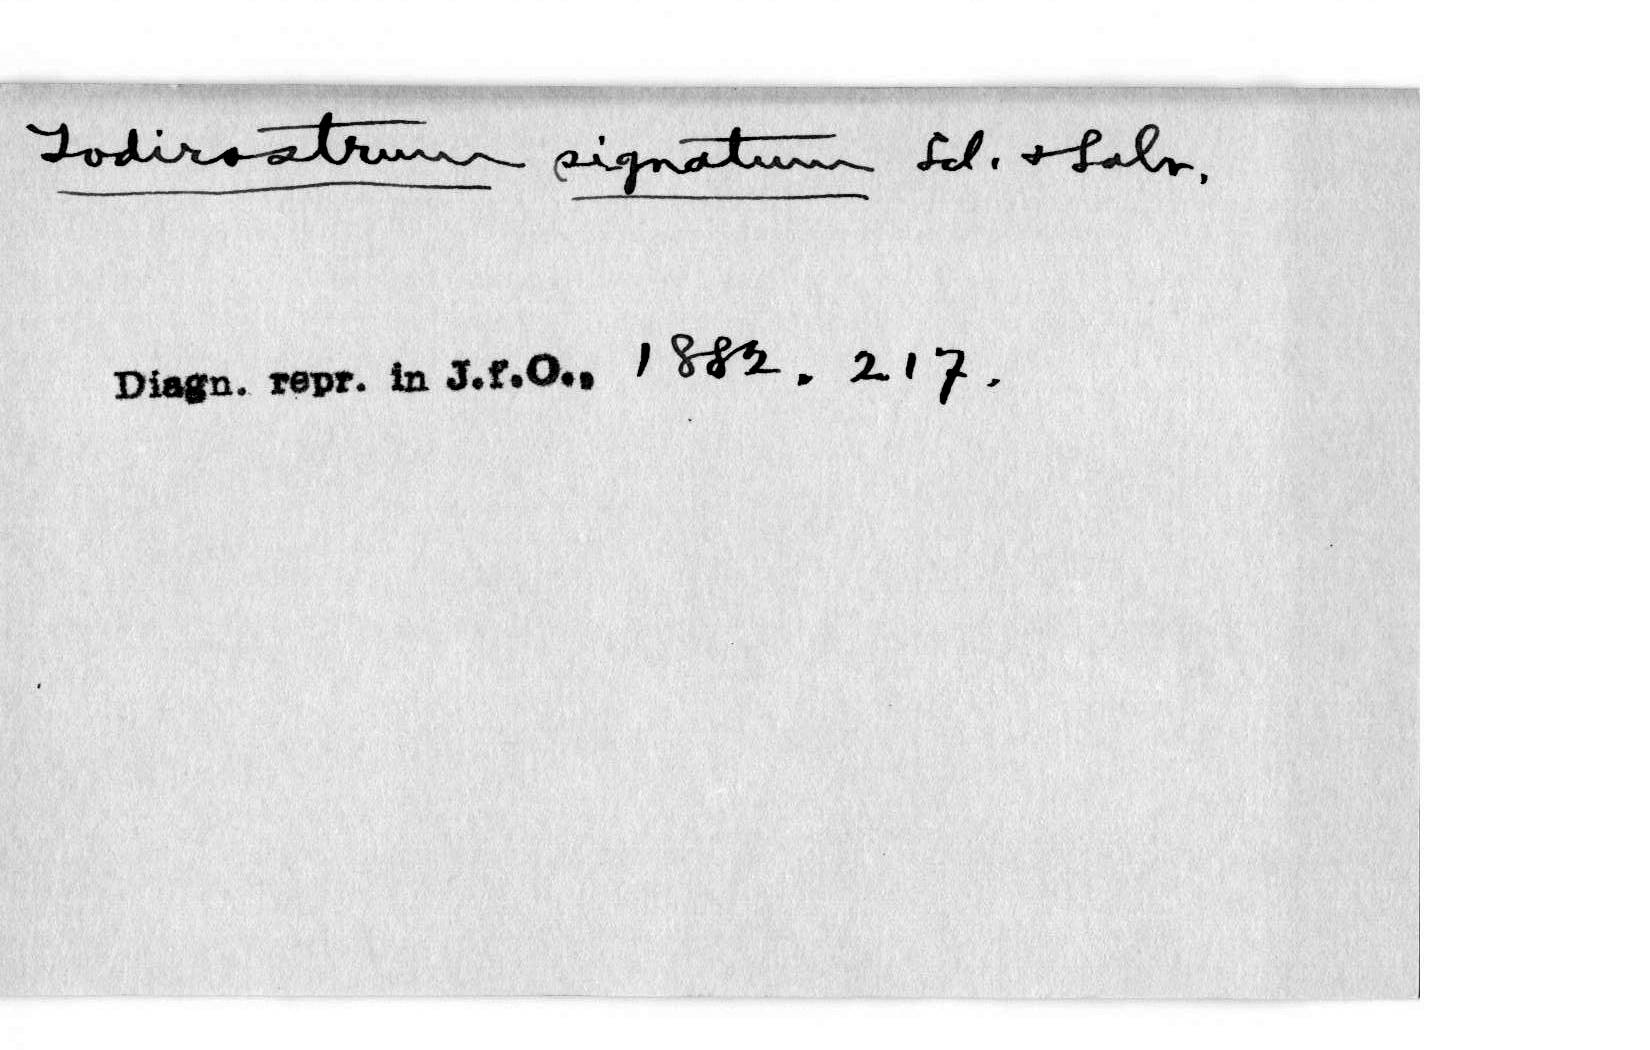 Todirostrum signatum Scl. & Salv.
Diagn. repr. in J.f.O., 1882, 217.